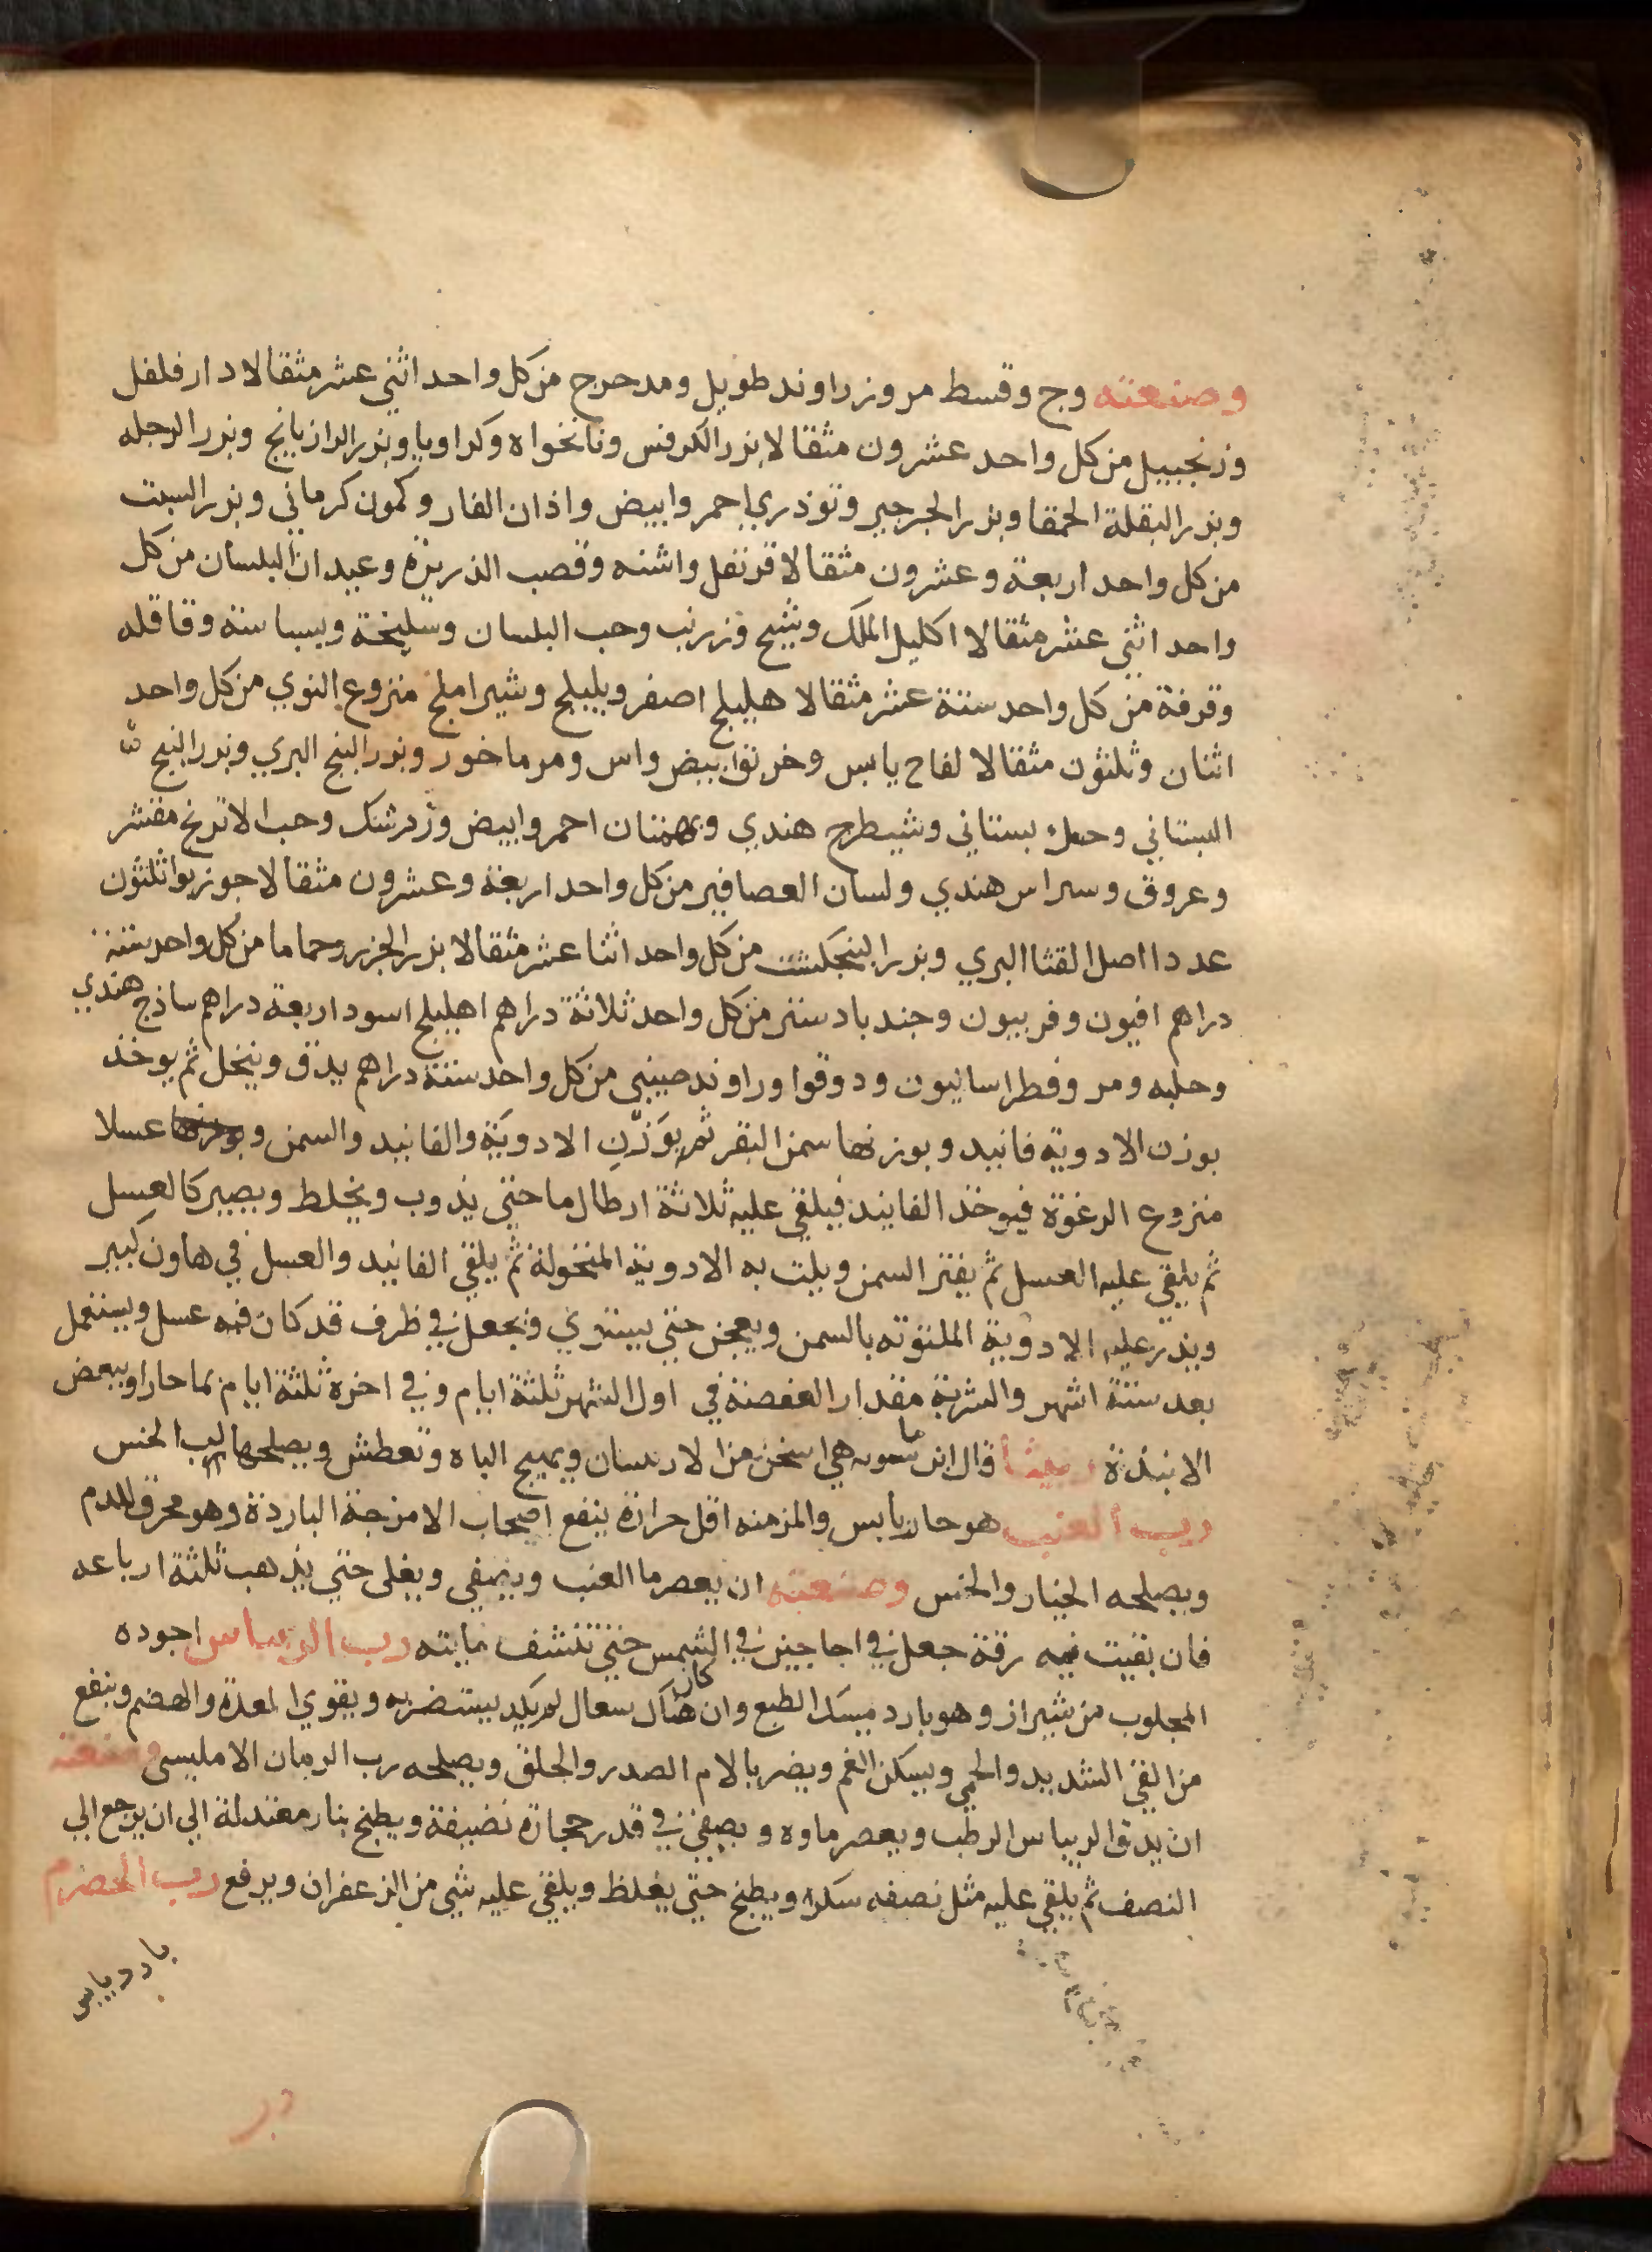 وصنعته وج وقسط مر وزراوند طويل ومدحرج من كل واحد اثني عشر مثقالا دار فلفل
وزنجبيل من كل واحد عشرون مثقالا بزر الكرفس ونانخواه وكراويا وبزر الرازيانج وبزر الرجله
وبزر البقلة الحمقا وبزر الجرجير وتوذري احمر وابيض واذان الفار وكمون كرماني وبزر السبت
من كل واحد اربعة وعشرون مثقالا قرنفل واشنه وقصب الذريرة وعيدان البلسان من كل
واحد اثني عشر مثقالا اكليل الملك وشيح وزرنب وحب البلسان وسليخة وبسباسة وقاقله
وقرفة من كل واحد ستة عشر مثقالا هليلج اصفر وبليلج وشير املج منزوع النوي من كل واحد
اثنان وثلثون مثقالا لفاح يابس وخربق ابيض واس ومرماخور وبزر البنج البري وبزر البنج
البستاني وحمك بستاني وشيطرج هندي وبهمنان احمر وابيض وزرشك وحب الاترنج مقشر
وعروق وسراس هندي ولسان العصافير من كل واحد اربعة وعشرون مثقالا جوزبوا ثلثون
عددا اصل القثا البري وبزر البنجكشت من كل واحد اثنا عشر مثقالا بزر الجزر وحماما من كل واحد ستة
دراهم افيون وفربيون وجندبادستر من كل واحد ثلاثة دراهم اهليلج اسود اربعة دراهم ساذج هندي
وحلبه ومر وفطراساليون ودوقوا وراوند صيني من كل واحد ستة دراهم يدق وينخل ثم يوخذ
بوزن الادوية فانيد وبوزنها سمن البقر ثم بوزن الادوية والفانيد والسمن عسلا
منزوع الرغوة فيوخذ الفانيد فيلقي عليه ثلاثة ارطال ما حتي يذوب ويخلط ويصير كالعسل
ثم يلقي عليه العسل ثم يفتر السمن ويلت به الادوية المنخولة ثم يلقي الفانيد والعسل في هاون كبير
ويذر عليه الادوية الملتوته بالسمن ويعجن حتي يستوي ويجعل في ظرف قد كان فيه عسل ويستعمل
بعد ستة اشهر والشربة مقدار العفصة في اول الشهر ثلثة ايام وفي اخره ثلثة ايام بما حار او ببعض
الانبذة ربيثا قال ابن ماسويه هي اسخن من الاربيان ويهيج الباه وتعطش ويصلحها لب الخس
رب العنب هو حار يابس والمزمنه اقل حرارة ينفع اصحاب الامزجة الباردة وهو محرق للدم
ويصلحه الخيار والخس وصنعته ان يعصر ما العنب ويصفي ويغلي حتي يذهب ثلثة ارباعه
فان بقيت فيه رقة جعل في اجاجين في الشمس حتي تنشف مايته رب الريباس اجوده
المجلوب من شيراز وهو بارد ميسك الطبع وان كان هناك سعال لم يكد يستضر به ويقوي المعدة والهضم وينفع
من القي الشديد والحمي ويسكن الغم ويضر بالام الصدر والحلق ويصلحه رب الرمان الامليسي وصنعته
ان يدق الريباس الرطب ويعصر ماوه ويصفي في قدر حجارة نضيفة ويطبخ بنار معتدلة الي ان يرجع الي
النصف ثم يلقي عليه مثل نصفه سكر ويطبخ حتي يغلظ ويلقي عليه شي من الزعفران ويرفع رب الحصرم
بارد يابس